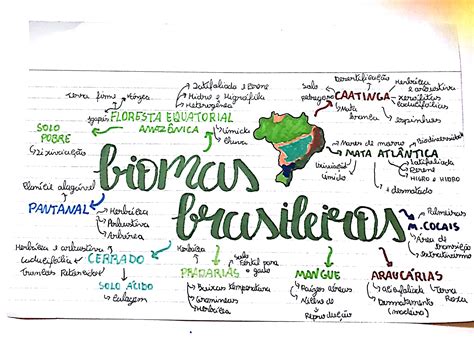 biomas
brasileiros
FLORESTA EQUATORIAL
AMAZÔNICA
Terra firme
Várzea
Igapó
Latifoliada e Perene
Hidro e Higrófila
Heterogênea
Úmida
Chuva
SOLO
POBRE
Lixiviação
CAATINGA
Desertificação
Solo
pedregoso
Mata
branca
Herbácea
e arbustiva
xerófitas
caducifólias
espinhosas
MATA ATLÂNTICA
Mares de morro
Biodiversidade
Latifoliada
Perene
HIGRO e HIDRO
úmido
+ desmatado
PANTANAL
Planície alagável
Herbácea
Arbustiva
Arbórea
CERRADO
Herbácea e arbustiva
Caducifólia
Troncos Retorcidos
SOLO ÁCIDO
Calagem
PRADARIAS
Herbácea
Solo
fértil para
o gado
Baixas temperatura
Gramíneas
Herbáceas
MANGUE
Raízes aéreas
Reprodução
ARAUCÁRIAS
Aciculifoliada
Terra
Roxa
Desmatamento
(madeira)
M. COCAIS
Palmeiras
Área de
transição
extrativismo